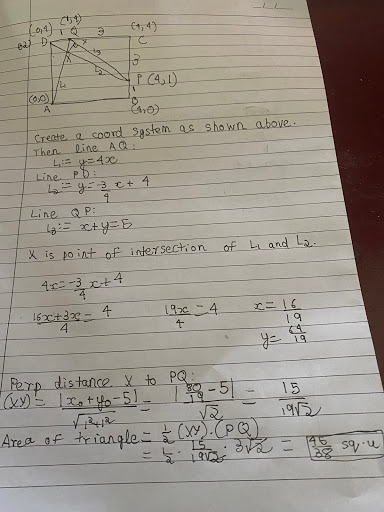 (1,4)
(0,4) 1 Q 3 (4,4)
D C
L3
X 3
L2
L1 P (4,1)
1
(0,0) B
A (4,0)
Create a coord system as shown above.
Then line AQ:
L1:= y=4x
Line PD:
L2:= y=-3/4 x + 4
Line QP:
L3:= x+y=5
X is point of intersection of L1 and L2.
4x=-3/4 x+4
16x+3x/4 = 4 19x/4 = 4 x = 16/19
y= 64/19
Perp distance X to PQ:
(XY) = |x0+y0-5|/√1²+1² = |80/19 -5|/√2 = 15/19√2
Area of triangle = 1/2 (XY).(PQ)
= 1/2 . 15/19√2 . 3√2 = 45/38 sq.u